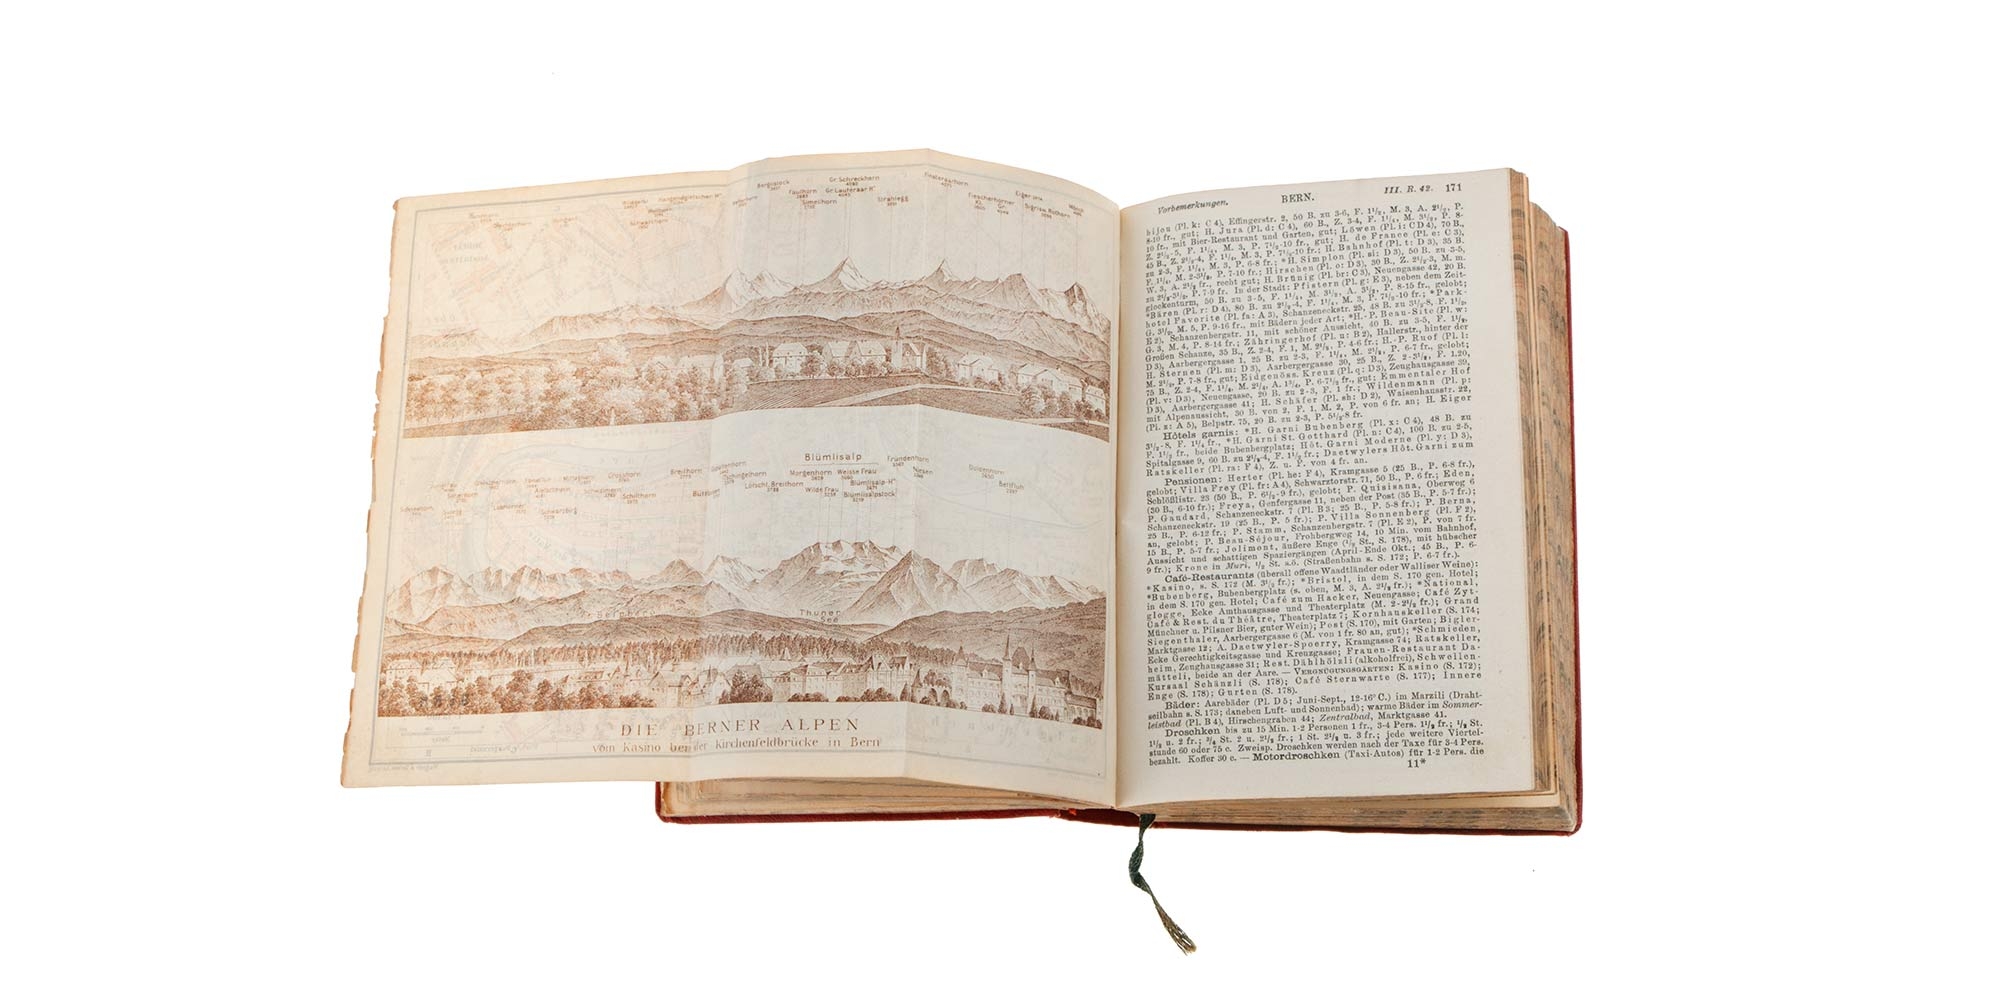 Bergistock
Gr. Schreckhorn
Finsteraarhorn
Faulhorn
Gr. Lauteraar H.
Simelihorn
Strahlegg
Fiescherhörner
Eiger
Kl.
Gr.
Mönch
Wetterhorn
Blümlisalp
Fründenhorn
Doldenhorn
Breithorn
Morgenhorn
Weisse Frau
Niesen
Lötschl. Breithorn
Wilde Frau
Blümlisalp-H.
Blümlisalpstock
Bettfluh
Schilthorn
Thuner
See
DIE BERNER ALPEN
vom Kasino bei der Kirchenfeldbrücke in Bern
Vorbemerkungen. BERN. III. R. 42. 171
bijou (Pl. k: C 4), Effingerstr. 2, 50 B. zu 3-6, F. 1½, M. 3, A. 2½, P.
8-10 fr., gut; H. Jura (Pl. d: C 4), 60 B., Z. 3-4, F. 1¼, M. 3½, P. 8-
10 fr., mit Bier-Restaurant und Garten, gut; Löwen (Pl. i: CD 4), 70 B.,
Z. 2½-5, F. 1¼, M. 3, P. 7½-10 fr., gut; H. de France (Pl. e: C 3),
45 B., Z. 2½-4, F. 1½, M. 3, P. 7½-10 fr.; H. Bahnhof (Pl. t: D 3), 35 B.
zu 2-3, F. 1¼, M. 3, P. 6-8 fr.; *H. Simplon (Pl. si: D 3), 50 B. zu 3-5,
F. 1¼, M. 2-3½, P. 7-10 fr.; Hirschen (Pl. o: D 3), 30 B., Z. 2½-3, M. m.
W. 3, A. 2½ fr., recht gut; H. Brünig (Pl. br: C 3), Neuengasse 42, 20 B.
zu 2½-3½, P. 7-9 fr. In der Stadt: Pfistern (Pl. g: E 3), neben dem Zeit-
glockenturm, 50 B. zu 3-5, F. 1¼, M. 3½, A. 3½, P. 8-15 fr., gelobt;
*Bären (Pl. r: D 4), 80 B. zu 2½-4, F. 1¼, M. 3, P. 7½-10 fr.; *Park-
hotel Favorite (Pl. fa: A 3), Schanzeneckstr. 25, 48 B. zu 3½-8, F. 1½,
G. 3½, M. 5, P. 9-16 fr., mit Bädern jeder Art; *H.-P. Beau-Site (Pl. w:
E 2), Schänzenbergstr. 11, mit schöner Aussicht, 40 B. zu 3-5, F. 1½,
G. 3, M. 4, P. 8-14 fr.; Zähringerhof (Pl. u: B 2), Hallerstr., hinter der
Großen Schanze, 35 B., Z. 2-4, F. 1, M. 2½, P. 4-6 fr.; H.-P. Ruof (Pl. l:
D 3), Aarbergergasse 1, 25 B. zu 2-3, F. 1¼, M. 2½, P. 6-7 fr., gelobt;
H. Sternen (Pl. m: D 3), Aarbergergasse 30, 25 B., Z. 2-3½, F. 1.20,
M. 2½, P. 7-8 fr., gut; Eidgenöss. Kreuz (Pl. q: D 3), Zeughausgasse 39,
75 B., Z. 2-4, F. 1¼, M. 2½, A. 1¾, P. 6-7½ fr., gut; Emmentaler Hof
(Pl. v: D 3), Neuengasse, 20 B. zu 2-3, F. 1 fr.; Wildenmann (Pl. p:
D 3), Aarbergergasse 41; H. Schäfer (Pl. sh: D 2), Waisenhausstr. 22,
mit Alpenaussicht, 30 B. von 2, F. 1, M. 2, P. von 6 fr. an; H. Eiger
(Pl. z: A 5), Belpstr. 75, 20 B. zu 2-3, P. 5½-8 fr.
Hôtels garnis: *H. Garni Bubenberg (Pl. x: C 4), 48 B. zu
3½-8, F. 1¼ fr., *H. Garni St. Gotthard (Pl. n: C 4), 100 B. zu 2-5,
F. 1½ fr., beide Bubenbergplatz; Hôt. Garni Moderne (Pl. y: D 3),
Spitalgasse 9, 60 B. zu 2½-4, F. 1½ fr.; Daetwylers Hôt. Garni zum
Ratskeller (Pl. ra: F 4), Z. u. F. von 4 fr. an.
Pensionen: Herter (Pl. he: F 4), Kramgasse 5 (25 B., P. 6-8 fr.),
gelobt; Villa Frey (Pl. fr: A 4), Schwarztorstr. 71, 50 B., P. 6 fr.; Eden,
Schlößlistr. 23 (50 B., P. 6½-9 fr.), gelobt; P. Quisisana, Oberweg 6
(30 B., 6-10 fr.); Freya, Genfergasse 11, neben der Post (35 B., P. 5-7 fr.);
P. Gaudard, Schanzeneckstr. 7 (Pl. B 3; 25 B., P. 5-8 fr.); P. Berna,
Schanzeneckstr. 19 (25 B., P. 5 fr.); P. Villa Sonnenberg (Pl. F 2),
25 B., P. 6-12 fr.; P. Stamm, Schanzenbergstr. 7 (Pl. E 2), P. von 7 fr.
an, gelobt; P. Beau-Séjour, Frohbergweg 14, 10 Min. vom Bahnhof,
15 B., P. 5-7 fr.; Jolimont, äußere Enge (½ St., S. 178), mit hübscher
Aussicht und schattigen Spaziergängen (April-Ende Okt.; 45 B., P. 6-
9 fr.); Krone in Muri, ½ St. s.ö. (Straßenbahn s. S. 172; P. 6-7 fr.).
Café-Restaurants (überall offene Waadtländer oder Walliser Weine):
*Kasino, s. S. 172 (M. 3½ fr.); *Bristol, in dem S. 170 gen. Hotel;
*Bubenberg, Bubenbergplatz (s. oben, M. 3, A. 2½ fr.); *National,
in dem S. 170 gen. Hotel; Café zum Hacker, Neuengasse; Café Zyt-
glogge, Ecke Amthausgasse und Theaterplatz (M. 2-2½ fr.); Grand
Café & Rest. du Théâtre, Theaterplatz 7; Kornhauskeller (S. 174;
Münchner u. Pilsner Bier, guter Wein); Post (S. 170), mit Garten; Bigler-
Siegenthaler, Aarbergergasse 6 (M. von 1 fr. 80 an, gut); *Schmieden,
Marktgasse 12; A. Daetwyler-Spoerry, Kramgasse 74; Ratskeller,
Ecke Gerechtigkeitsgasse und Kreuzgasse; Frauen-Restaurant Da-
heim, Zeughausgasse 31; Rest. Dählhölzli (alkoholfrei), Schwellen-
mätteli, beide an der Aare. — VERGNÜGUNGSGÄRTEN: Kasino (S. 172);
Kursaal Schänzli (S. 178); Café Sternwarte (S. 177); Innere
Enge (S. 178); Gurten (S. 178).
Bäder: Aarebäder (Pl. D 5; Juni-Sept., 12-16° C.) im Marzili (Draht-
seilbahn s. S. 173; daneben Luft- und Sonnenbad); warme Bäder im Sommer-
leistbad (Pl. B 4), Hirschengraben 44; Zentralbad, Marktgasse 41.
Droschken bis zu 15 Min. 1-2 Personen 1 fr., 3-4 Pers. 1½ fr.; ½ St.
1½ u. 2 fr.; ¾ St. 2 u. 2½ fr.; 1 St. 2½ u. 3 fr.; jede weitere Viertel-
stunde 60 oder 75 c. Zweisp. Droschken werden nach der Taxe für 3-4 Pers.
bezahlt. Koffer 30 c. — Motordroschken (Taxi-Autos) für 1-2 Pers. die
11*